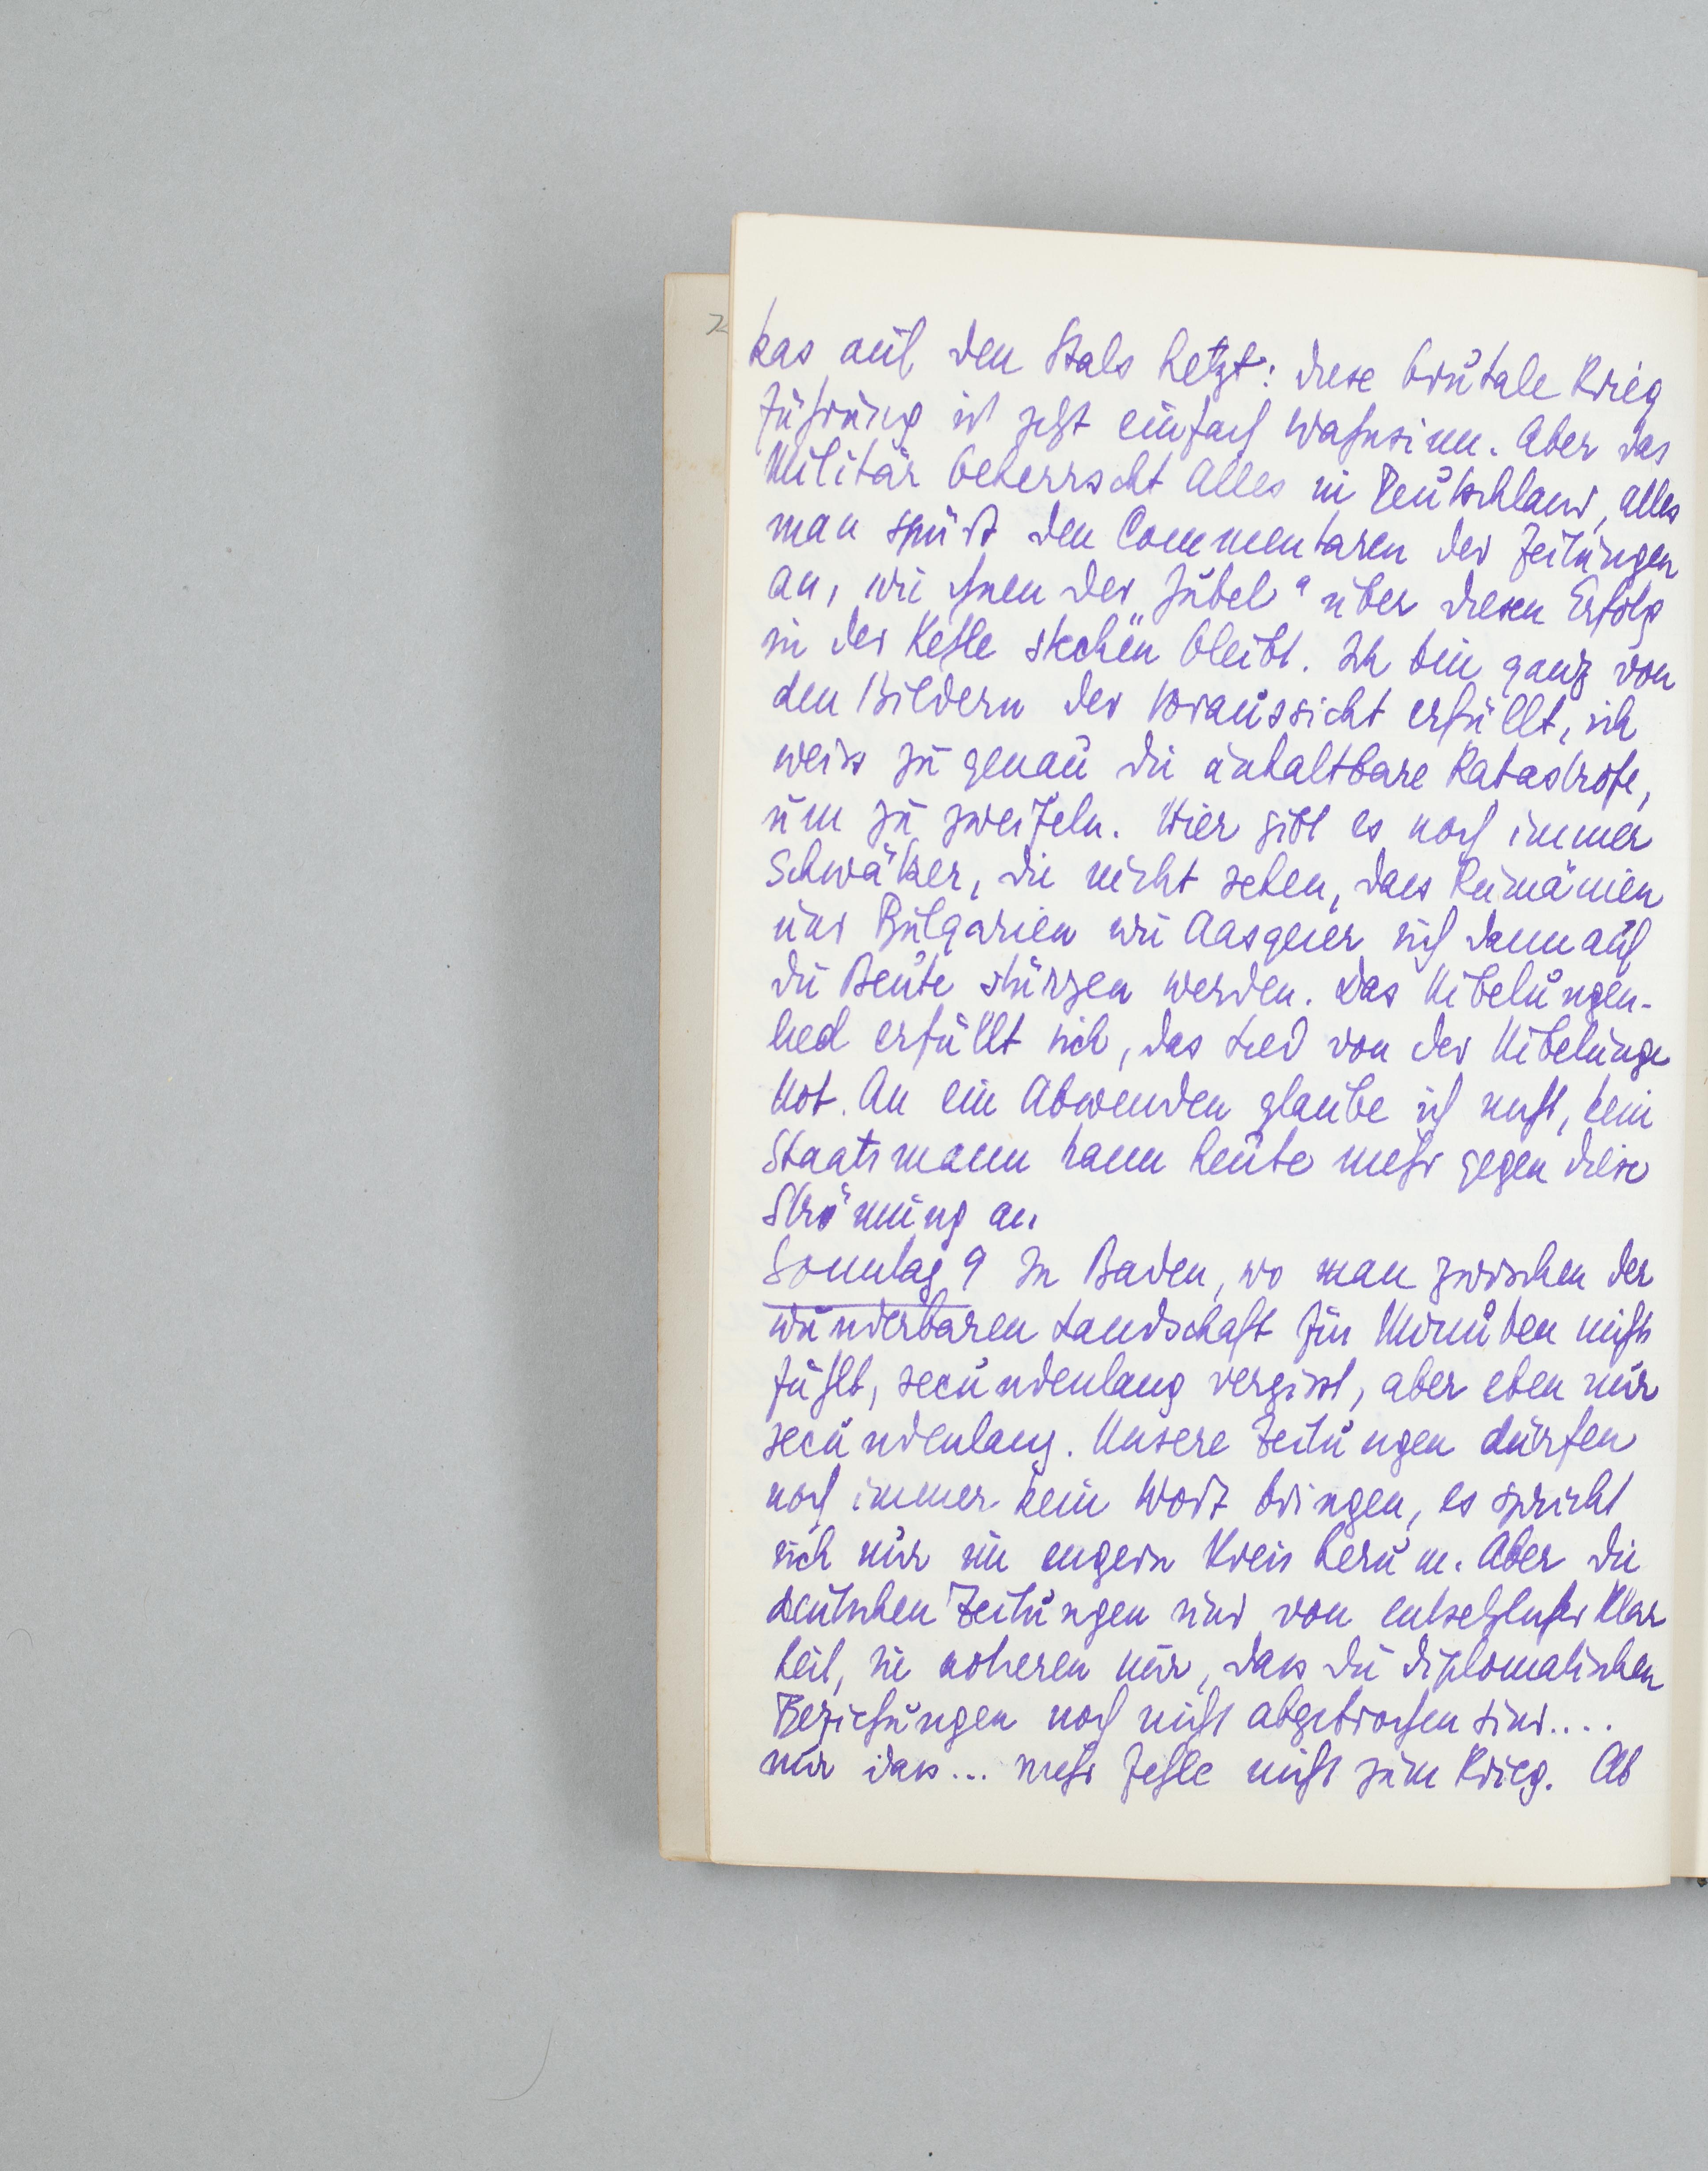 kas auf den Hals hetzt: diese brutale Krieg
führung ist jetzt einfach Wahnsinn. Aber das
Militär beherrscht Alles in Deutschland, alles
man spürt den Commentaren der Zeitungen
an, wie ihnen der „Jubel“ über diesen Erfolg
in der Kehle stecken bleibt. Ich bin ganz von
den Bildern der Voraussicht erfüllt, ich
weiss zu genau die unhaltbare Katastrofe,
um zu zweifeln. Hier gibt es noch immer
Schwätzer, die nicht sehen, dass Rumänien
und Bulgarien wie Aasgeier sich dann auf
die Beute stürzen werden. Das Nibelungen-
lied erfüllt sich, das Lied von der Nibelunge
Not. An ein Abwenden glaube ich nicht, kein
Staatsmann kann heute mehr gegen diese
Strömung an.
Sonntag 9 In Baden, wo man zwischen der
wunderbaren Landschaft für Minuten nichts
fühlt, secundenlang vergisst, aber eben nur
secundenlang. Unsere Zeitungen dürfen
noch immer kein Wort bringen, es spricht
sich nur im engern Kreis herum. Aber die
deutschen Zeitungen sind von entsetzlicher Klar
heit, sie notieren nur, dass die diplomatischen
Beziehungen noch nicht abgebrochen sind....
nur das... mehr fehle nicht zum Krieg. Ab